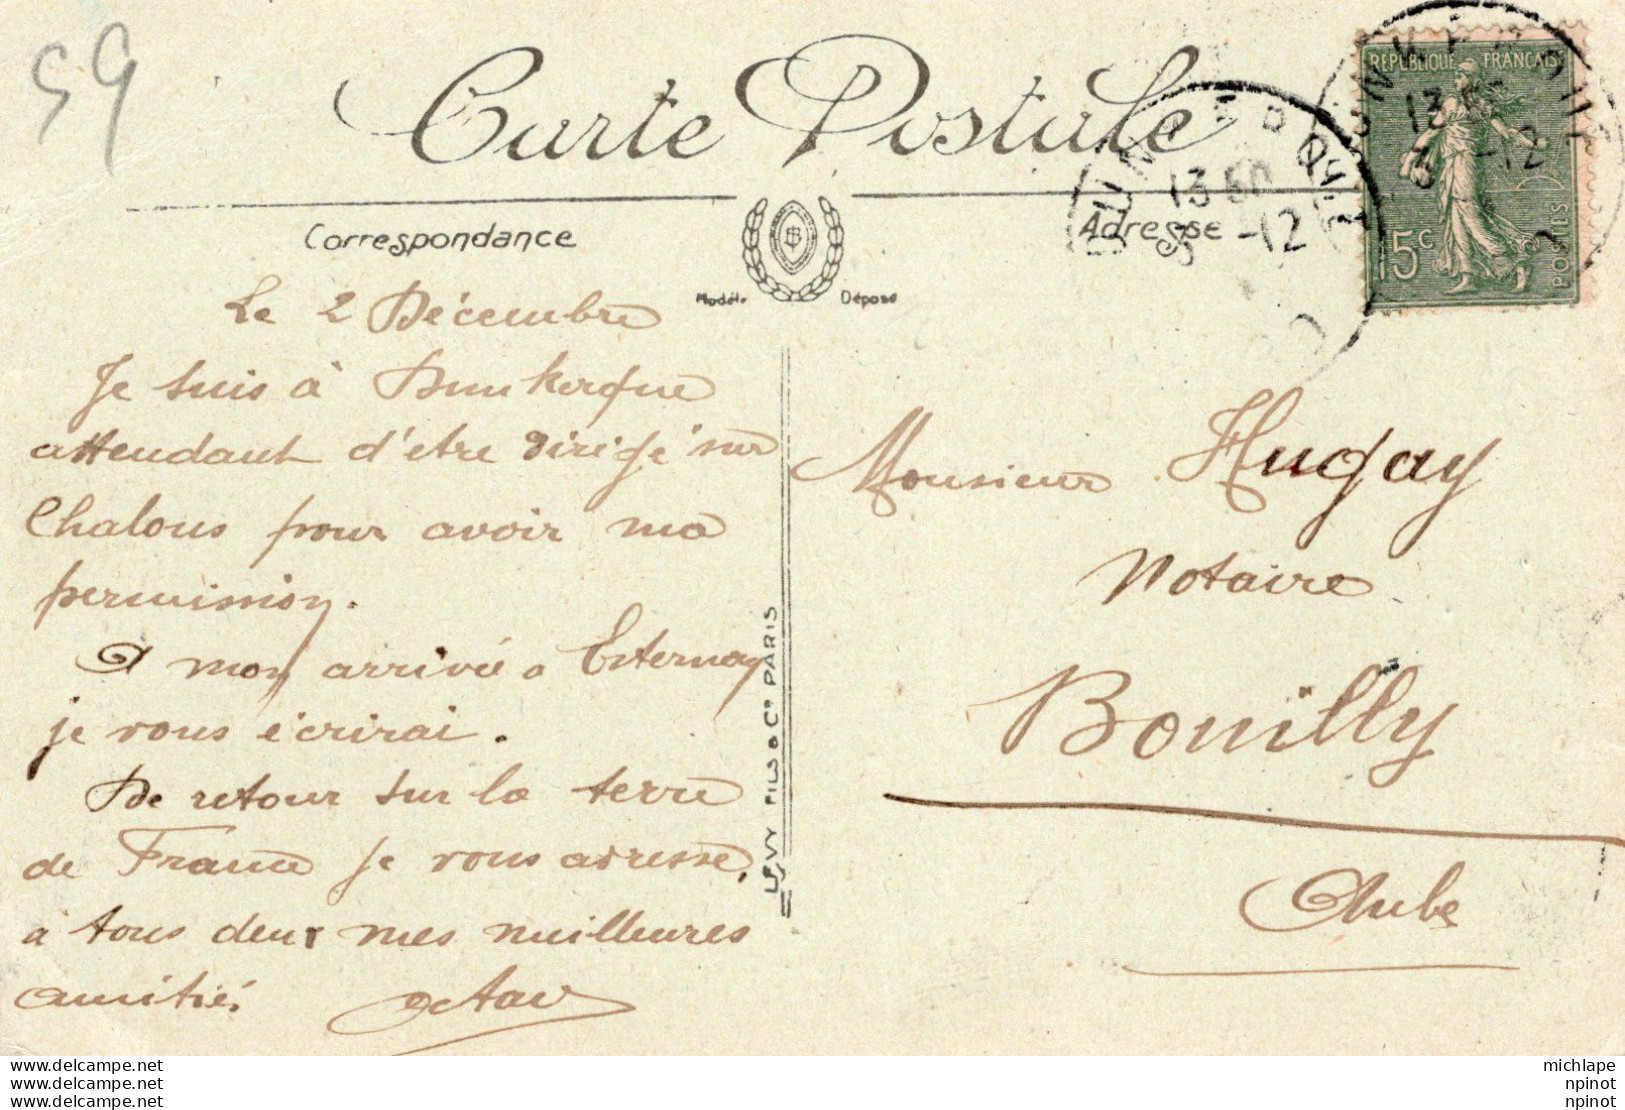 59
Carte Postale
RÉPUBLIQUE FRANÇAISE
15c
POSTES
DUNKERQUE
13 50
3 -12
DUNKERQUE
13 50
3 -12
Correspondance
Adresse
Modèle Déposé
Le 2 Décembre
Je suis à Dunkerque
attendant d'être dirigé sur
Chalons pour avoir ma
permission.
A mon arrivée a Esternay
je vous écrirai.
De retour sur la terre
de France je vous adresse,
à tous deux mes meilleures
amitiés Octav
LÉVY FILS & Cie PARIS
Monsieur Hugay
Notaire
Bouilly
Aube
www.delcampe.net
www.delcampe.net
www.delcampe.net
michlape
npinot
npinot